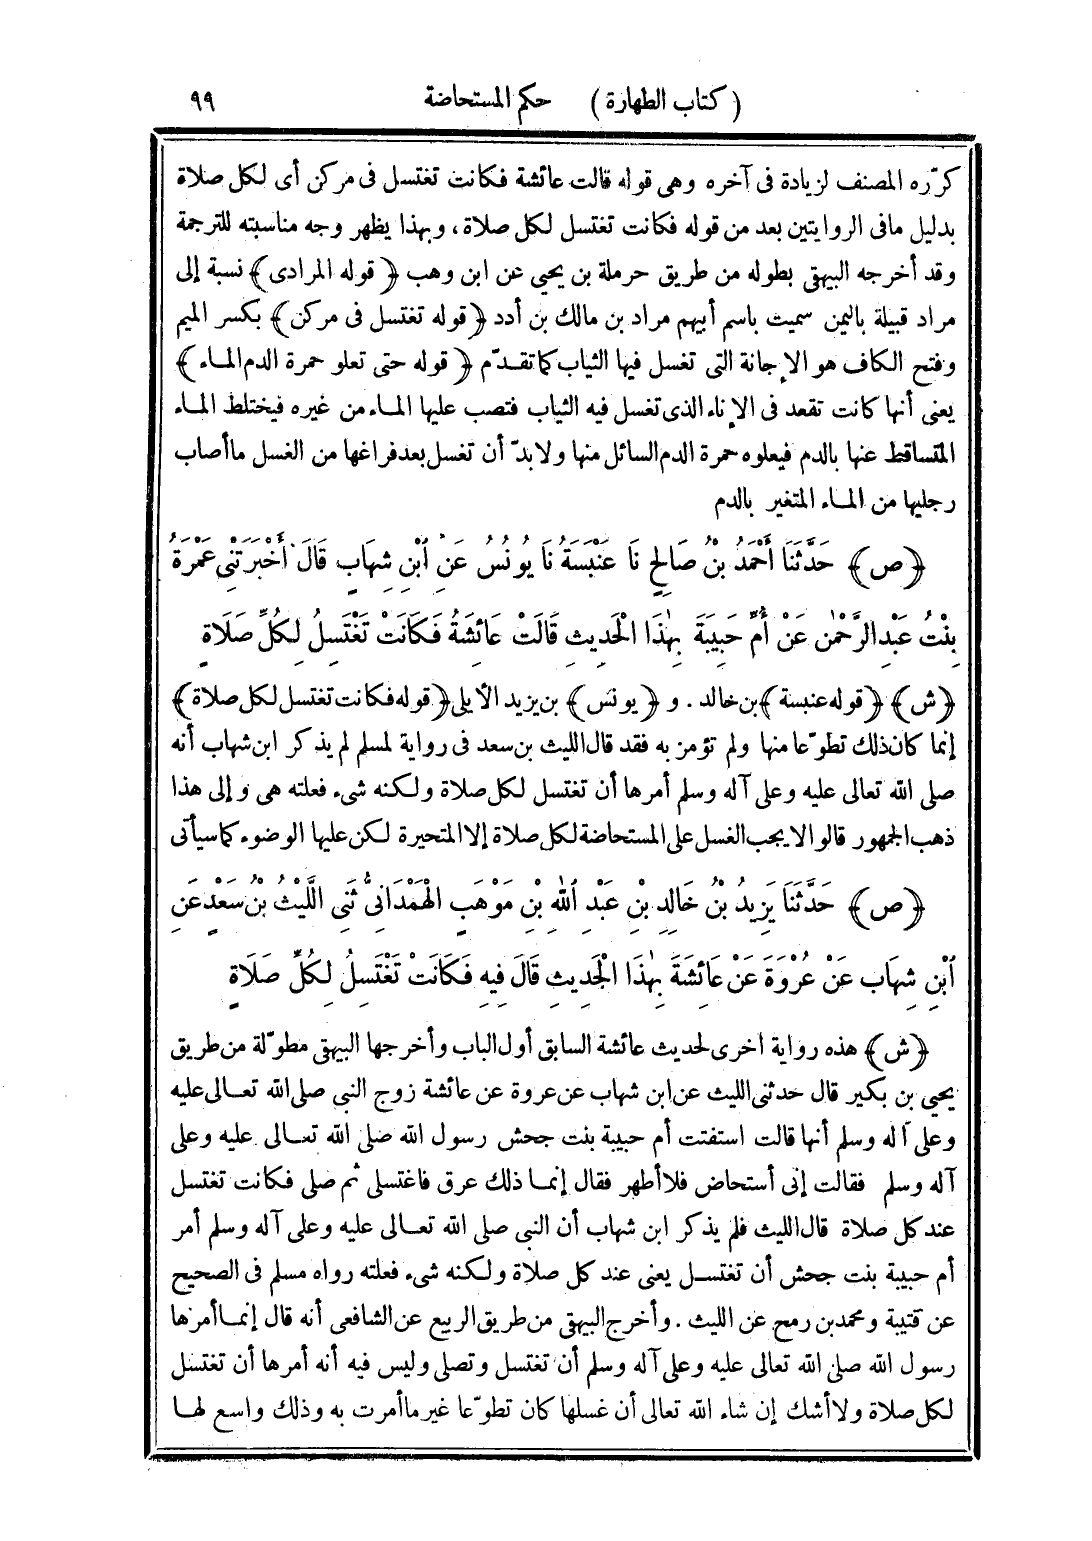 (كتاب الطهارة) حكم المستحاضة ٩٩
كرّره المصنف لزيادة فى آخره وهى قوله قالت عائشة فكانت تغتسل فى مركن أى لكل صلاة
بدليل مافى الروايتين بعد من قوله فكانت تغتسل لكل صلاة، وبهذا يظهر وجه مناسبته للترجمة
وقد أخرجه البيهقى بطوله من طريق حرملة بن يحيى عن ابن وهب ﴿قوله المرادى﴾ نسبة إلى
مراد قبيلة باليمن سميت باسم أبيهم مراد بن مالك بن أدد ﴿قوله تغتسل فى مركن﴾ بكسر الميم
وفتح الكاف هو الإجانة التى تغسل فيها الثياب كماتقدّم ﴿قوله حتى تعلو حمرة الدم الماء﴾
يعنى أنها كانت تقعد فى الإناء الذى تغسل فيه الثياب فتصب عليها الماء من غيره فيختلط الماء
المتساقط عنها بالدم فيعلوه حمرة الدم السائل منها ولابدّ أن تغسل بعد فراغها من الغسل ماأصاب
رجليها من الماء المتغير بالدم
﴿ص﴾ حَدَّثَنَا أَحْمَدُ بْنُ صَالِحٍ نَا عَنْبَسَةُ نَا يُونُسُ عَنِ ابْنِ شِهَابٍ قَالَ أَخْبَرَتْنِى عَمْرَةُ
بِنْتُ عَبْدِ الرَّحْمٰنِ عَنْ أُمِّ حَبِيبَةَ بِهٰذَا الْحَدِيثِ قَالَتْ عَائِشَةُ فَكَانَتْ تَغْتَسِلُ لِكُلِّ صَلَاةٍ
﴿ش﴾ ﴿قوله عنبسة﴾ بن خالد. و ﴿يونس﴾ بن يزيد الأيلى ﴿قوله فكانت تغتسل لكل صلاة﴾
إنما كان ذلك تطوّعا منها ولم تؤمر به فقد قال الليث بن سعد فى رواية لمسلم لم يذكر ابن شهاب أنه
صلى الله تعالى عليه وعلى آله وسلم أمرها أن تغتسل لكل صلاة ولكنه شىء فعلته هى وإلى هذا
ذهب الجمهور قالوا لايجب الغسل على المستحاضة لكل صلاة إلا المتحيرة لكن عليها الوضوء كما سيأتى
﴿ص﴾ حَدَّثَنَا يَزِيدُ بْنُ خَالِدِ بْنِ عَبْدِ اللّٰهِ بْنِ مَوْهَبٍ الْهَمْدَانِىُّ ثَنِى اللَّيْثُ بْنُ سَعْدٍ عَنِ
ابْنِ شِهَابٍ عَنْ عُرْوَةَ عَنْ عَائِشَةَ بِهٰذَا الْحَدِيثِ قَالَ فِيهِ فَكَانَتْ تَغْتَسِلُ لِكُلِّ صَلَاةٍ
﴿ش﴾ هذه رواية اخرى لحديث عائشة السابق أول الباب وأخرجها البيهقى مطوّلة من طريق
يحيى بن بكير قال حدثنى الليث عن ابن شهاب عن عروة عن عائشة زوج النبى صلى الله تعالى عليه
وعلى آله وسلم أنها قالت استفتت أم حبيبة بنت جحش رسول الله صلى الله تعالى عليه وعلى
آله وسلم فقالت إنى أستحاض فلا أطهر فقال إنما ذلك عرق فاغتسلى ثم صلى فكانت تغتسل
عند كل صلاة قال الليث فلم يذكر ابن شهاب أن النبى صلى الله تعالى عليه وعلى آله وسلم أمر
أم حبيبة بنت جحش أن تغتسل يعنى عند كل صلاة ولكنه شىء فعلته رواه مسلم فى الصحيح
عن قتيبة ومحمد بن رمح عن الليث. وأخرج البيهقى من طريق الربيع عن الشافعى أنه قال إنما أمرها
رسول الله صلى الله تعالى عليه وعلى آله وسلم أن تغتسل وتصلى وليس فيه أنه أمرها أن تغتسل
لكل صلاة ولا أشك إن شاء الله تعالى أن غسلها كان تطوّعا غير ماأمرت به وذلك واسع لها